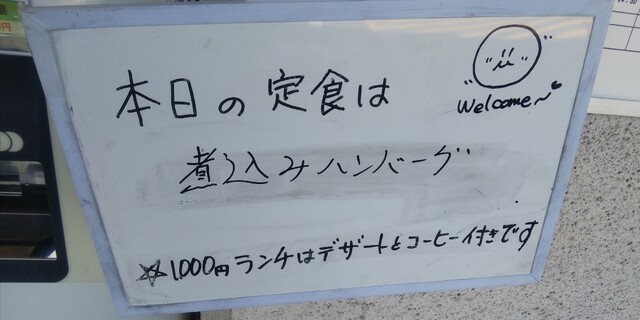 本日の定食は
Welcome~
煮込みハンバーグ
☆1,000円ランチはデザートとコーヒー付きです